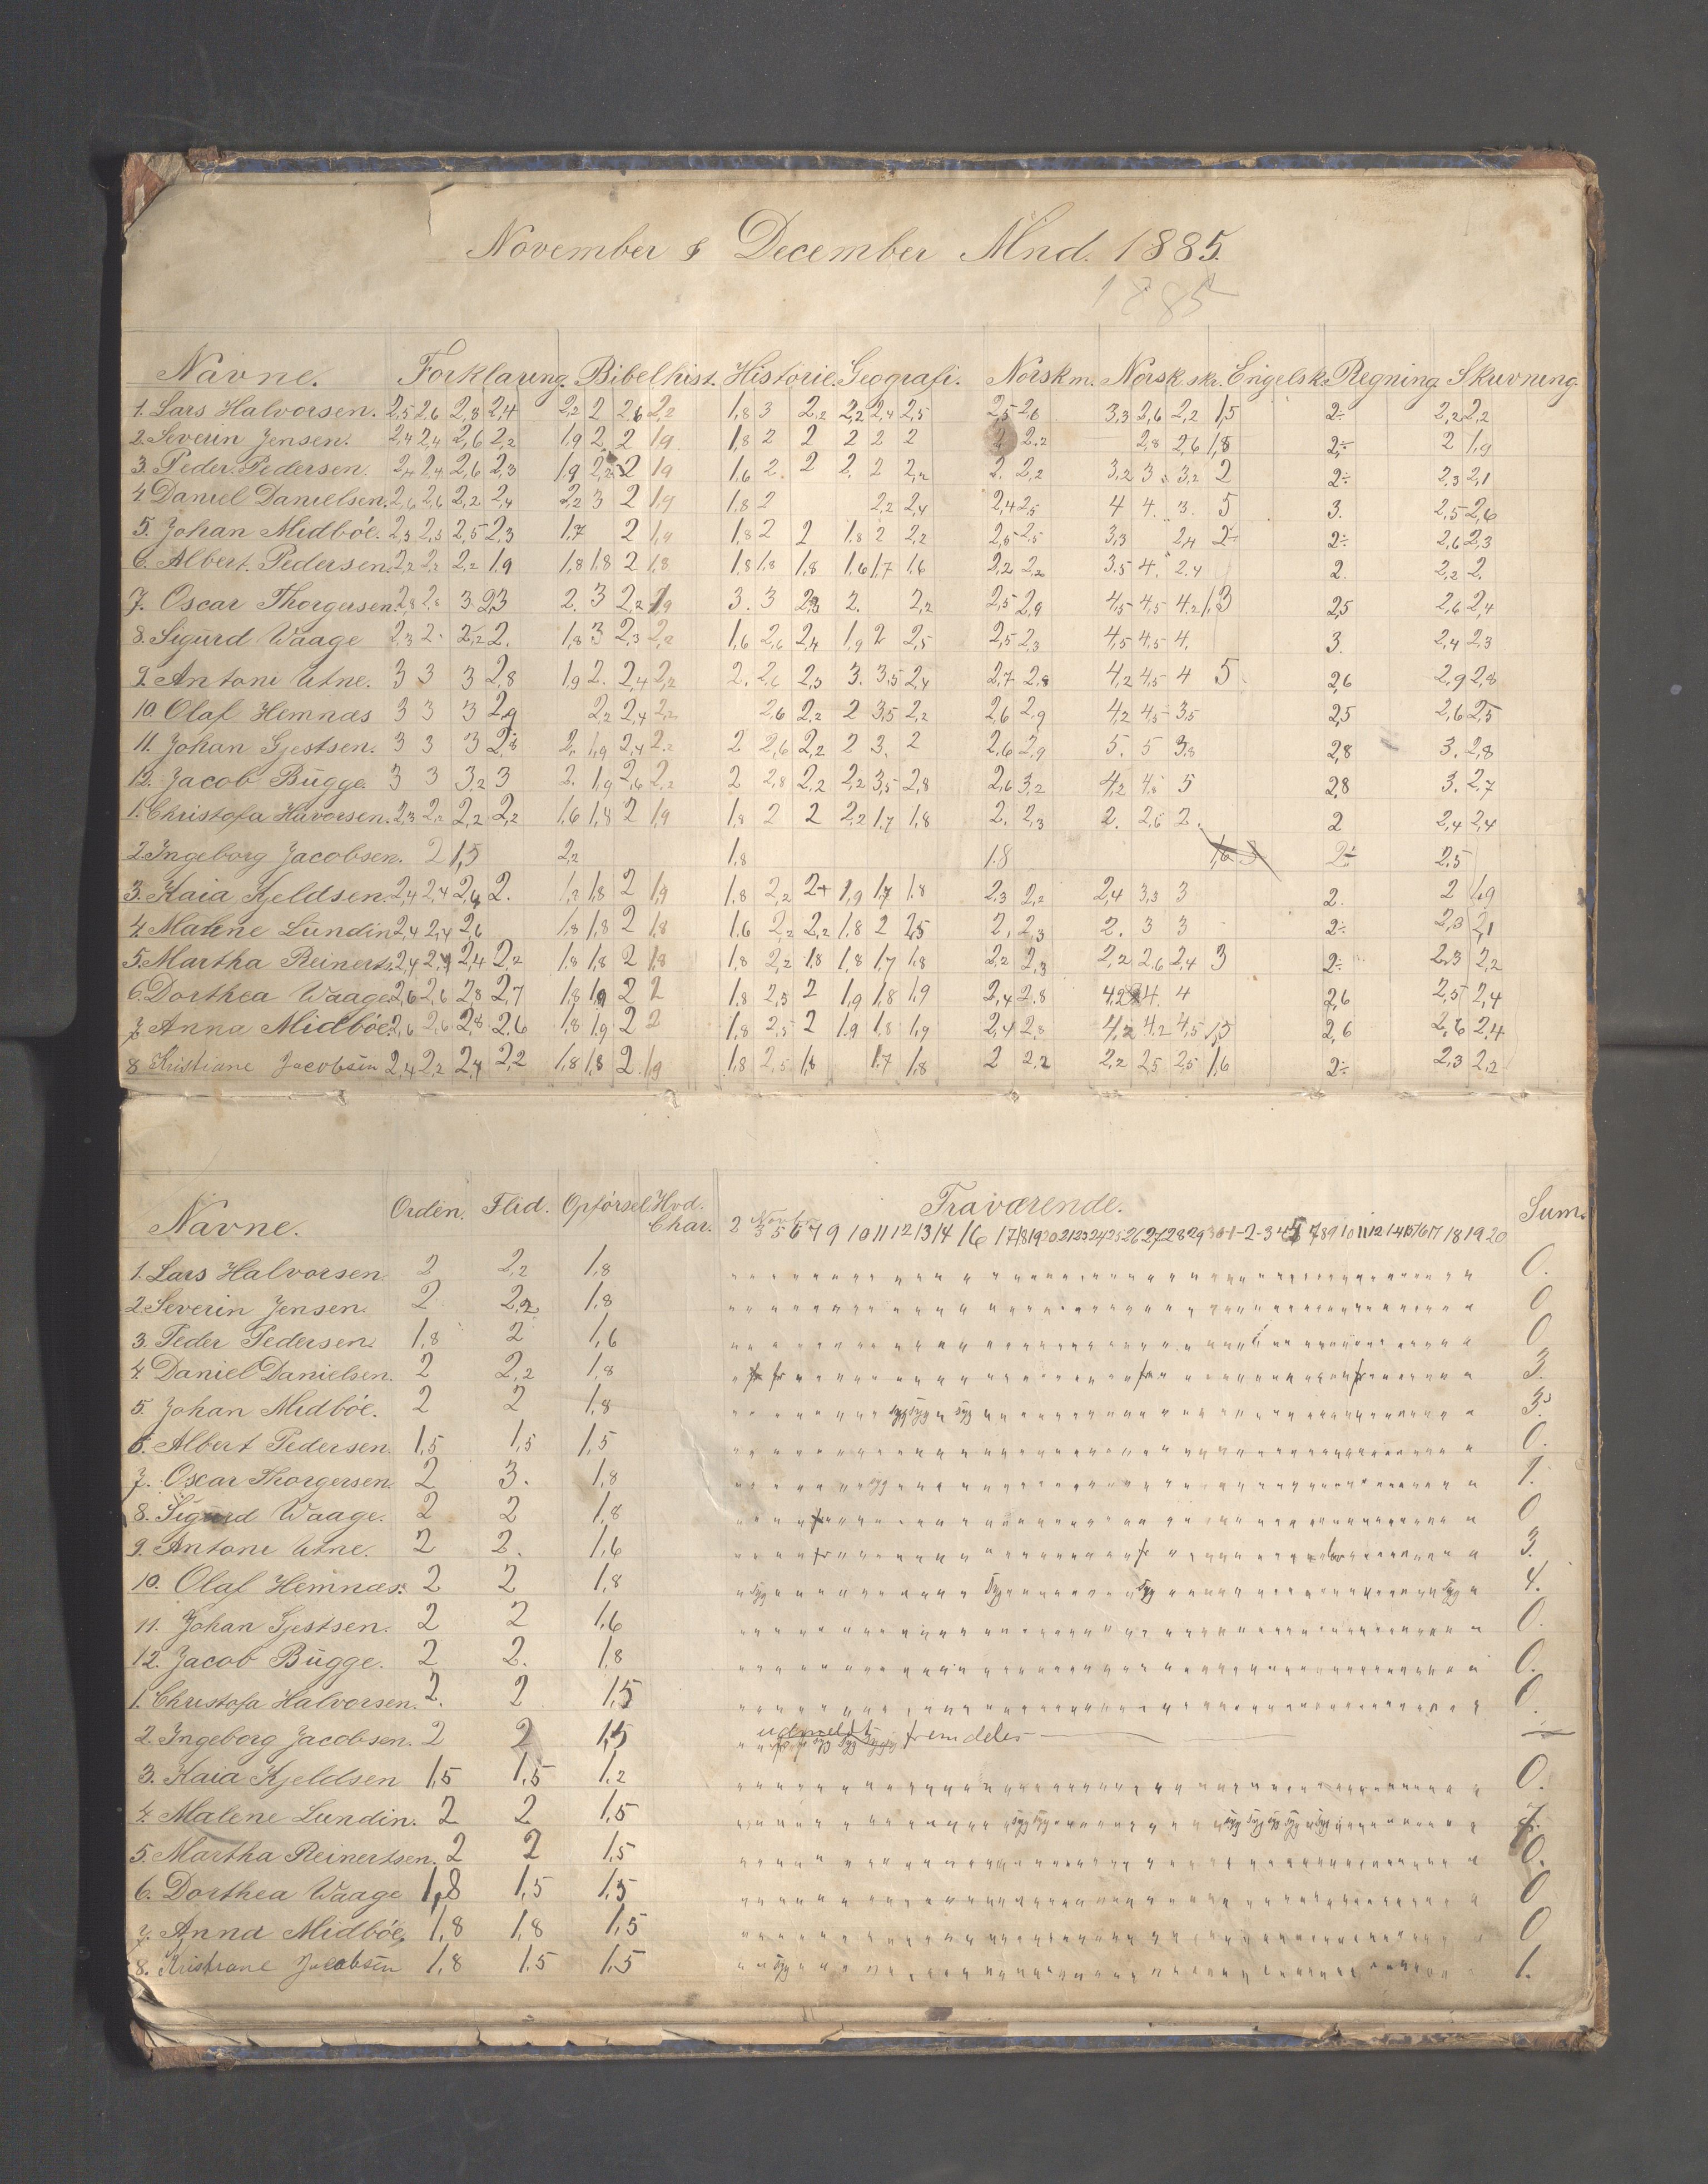 November & December Mnd. 1885.
1885
Navne. Forklaring. Bibelhist. Historie. Geografi. Norsk m. Norsk skr. Engelsk. Regning. Skrivning.
1. Lars Halvorsen. 2,5 2,6 2,8 2,4 2,2 2 2,6 2,2 1,8 3 2,2 2,2 2,4 2,5 2,5 2,6 3,3 2,6 2,2 1,5 2÷ 2,2 2,2
2. Severin Jensen. 2,4 2,4 2,6 2,2 1,9 2 2 1,9 1,8 2 2 2 2 2 2 2,2 2,8 2,6 1,8 2÷ 2 1,9
3. Peder Pedersen. 2,4 2,4 2,6 2,3 1,9 2,2 2 1,9 1,6 2 2 2 2 2,2 2. 2,2 3,2 3 3,2 2 2÷ 2,3 2,1
4. Daniel Danielsen. 2,6 2,6 2,2 2,4 2,2 3 2 1,9 1,8 2 2,2 2,4 2,4 2,5 4 4. 3. 5 3. 2,5 2,6
5. Johan Midböe. 2,3 2,3 2,5 2,3 1,7 2 1,9 1,8 2 2 1,8 2 2,2 2,5 2,5 3,3 2,4 2÷ 2÷ 2,6 2,3
6. Albert Pedersen. 2,2 2,2 2,2 1,9 1,8 1,8 2 1,8 1,8 1,8 1,8 1,6 1,7 1,6 2,2 2,2 3,5 4. 2,4 2. 2,2 2.
7. Oscar Thorgersen. 2,8 2,8 3. 2,3 2. 3 2,2 1,9 3. 3 2,3 2. 2,2 2,5 2,9 4,5 4,5 4,2 1,3 2,5 2,6 2,4
8. Sigurd Waage 2,3 2. 2,2 2. 1,8 3 2,3 2,2 1,6 2,6 2,4 1,9 2 2,5 2,5 2,3 4,5 4,5 4. 3. 2,4 2,3
9. Antoni Utne. 3 3 3 2,8 1,9 2. 2,4 2,2 2. 2,6 2,3 3. 3,5 2,4 2,7 2,8 4,2 4,5 4 5 2,6 2,9 2,8
10. Olaf Hemnæs 3 3 3 2,9 2,2 2,4 2,2 2,6 2,2 2 3,5 2,2 2,6 2,9 4,2 4,5 3,5 2,5 2,6 2,5
11. Johan Gjestsen. 3 3 3 2,8 2. 1,9 2,4 2,2 2 2,6 2,2 2 3. 2 2,6 2,9 5. 5 3,8 2,8 3. 2,8
12. Jacob Bugge 3 3 3,2 3 2. 1,9 2,6 2,2 2 2,8 2,2 2,2 3,5 2,8 2,6 3,2 4,2 4,8 5 2,8 3. 2,7
1. Christofa Havorsen. 2,3 2,2 2,2 2,2 1,6 1,8 2 1,9 1,8 2 2 2,2 1,7 1,8 2. 2,3 2. 2,6 2. 2 2,4 2,4
2. Ingeborg Jacobsen. 2 1,5 2,2 1,8 1.8 1,6 3 2÷ 2,5
3. Kaia Kjeldsen. 2,4 2,4 2,4 2. 1,7 1,8 2 1,9 1,8 2,2 2+ 1,9 1,7 1,8 2,3 2,2 2,4 3,3 3 2. 2 1,9
4. Malene Lundin 2,4 2,4 2,6 1,8 1,8 2 1,8 1,6 2,2 2,2 1,8 2 2,5 2. 2,3 2. 3 3 2÷ 2,3 2,1
5. Martha Reinerts. 2,4 2,4 2,4 2,2 1,8 1,8 2 1,8 1,8 2,2 1,8 1,8 1,7 1,8 2,2 2,3 2,2 2,6 2,4 3 2÷ 2,3 2,2
6. Dorthea Waage 2,6 2,6 2,8 2,7 1,8 1,9 2 2 1,8 2,5 2 1,9 1,8 1,9 2,4 2,8 4,2 4. 4 2,6 2,5 2,4
7. Anna Midböe. 2,6 2,6 2,8 2,6 1,8 1,9 2 2 1,8 2,5 2 1,9 1,8 1,9 2,4 2,8 4,2 4,2 4,5 1,5 2,6 2,6 2,4
8 Kristiane Jacobsen 2,4 2,2 2,4 2,2 1,8 1,8 2 1,9 1,8 2,5 1,8 1,7 1,8 2 2,2 2,2 2,5 2,5 1,6 2÷ 2,3 2,2
Navne. Orden. Flid. Opförsel Hvd. Char. Fraværende. Sum.
2 3 5 6 7 9 10 11 12 13 14 16 17 18 19 20 21 23 24 25 26 27 28 29 30 1-2-3 4 5 7 8 9 10 11 12 14 15 16 17 18 19 20
1. Lars Halvorsen. 2 2,2 1,8 0.
2. Severin Jensen. 2 2,2 1,8 0
3. Peder Pedersen. 1,8 2 1,6 0
4. Daniel Danielsen. 2 2,2 1,8 fr fr fr fr 3.
5. Johan Midböe. 2 2 1,8 syg syg syg 3.
6. Albert Pedersen. 1,5 1,5 1,5 0.
7. Oscar Thorgersen. 2 3. 1,8 syg 1.
8. Sigurd Waage. 2 2 1,8 0
9. Antoni Utne. 2 2. 1,6 fr fr 3.
10. Olaf Hemnæs. 2 2 1,8 syg syg syg syg 4.
11. Johan Gjestsen. 2 2 1,6 0.
12. Jacob Bugge. 2 2. 1,8 0.
1. Christofa Halvorsen. 2. 2 1,5 0
2. Ingeborg Jacobsen. 2 2 1,5 udmeldt fremdeles
3. Kaia Kjeldsen 1,5 1,5 1,2 0.
4. Malene Lundin. 2 2 1,5 syg syg syg syg syg syg syg 7.
5. Martha Reinertsen. 2 2 1,5 0.
6. Dorthea Waage 1,8 1,5 1,5 0
7. Anna Midböe, 1,8 1,8 1,5 0
8. Kristiane Jacobsen 1,8 1.5 1,5 syg 1.